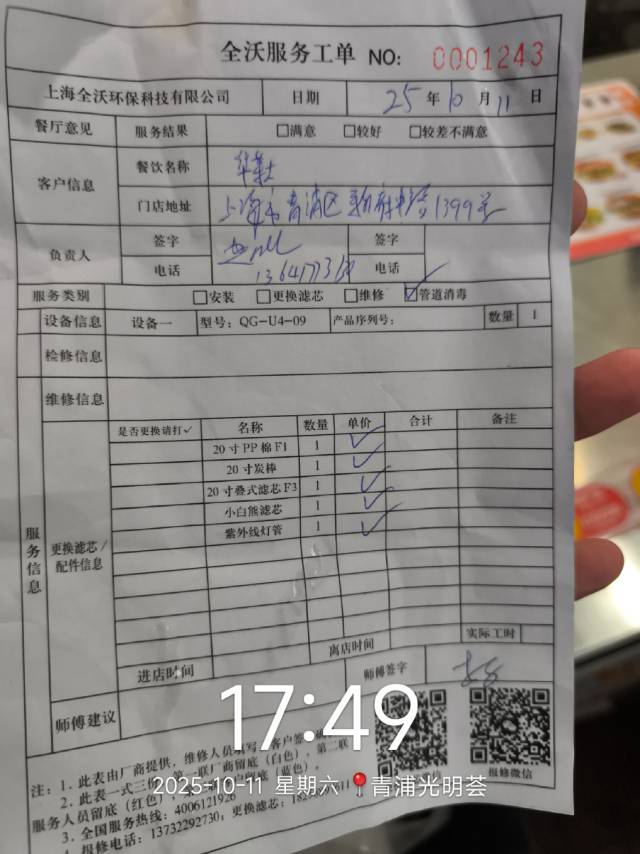 全沃服务工单 NO: 0001243
上海全沃环保科技有限公司 日期 25年10月11日
餐厅意见 服务结果 □满意 □较好 □较差不满意
客户信息 餐饮名称 华莱士
门店地址 上海市青浦区 1399号
负责人 签字 签字
电话 电话
服务类别 □安装 □更换滤芯 □维修 ☑管道消毒
设备信息 设备一 型号: QG-U4-09 产品序列号: 数量 1
检修信息
维修信息
服务信息
更换滤芯/配件信息
是否更换请打✓ 名称 数量 单价 合计 备注
20寸PP棉F1 1 ✓
20寸炭棒 1 ✓
20寸叠式滤芯F3 1 ✓
小白熊滤芯 1 ✓
紫外线灯管 1 ✓
进店时间 离店时间 实际工时
师傅建议 师傅签字
17:49
报修微信
2025-10-11 星期六 青浦光明荟
注: 1. 此表由厂商提供, 维修人员填写, 客户签
2. 此表一式三份, 第一联厂商留底(白色), 第二联
服务人员留底(红色), 底(蓝色)。
3. 全国服务热线: 4006121926
4. 报修电话: 13732292730; 更换滤芯: